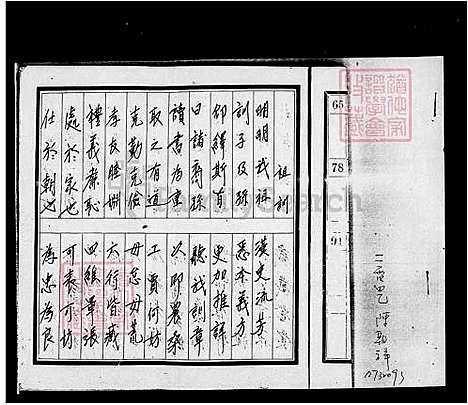 祖訓
明明我祖 漢史流芳
訓子及孫 悉本義方
仰繹斯旨 更加推詳
曰諸裔孫 聽我訓章
讀書為重 次即農桑
取之有道 工賈何妨
克勤克儉 毋怠毋荒
孝友睦婣 六行皆臧
禮義廉恥 四維畢張
處於家也 可表可坊
仕於朝也 為忠為良
65
78
91